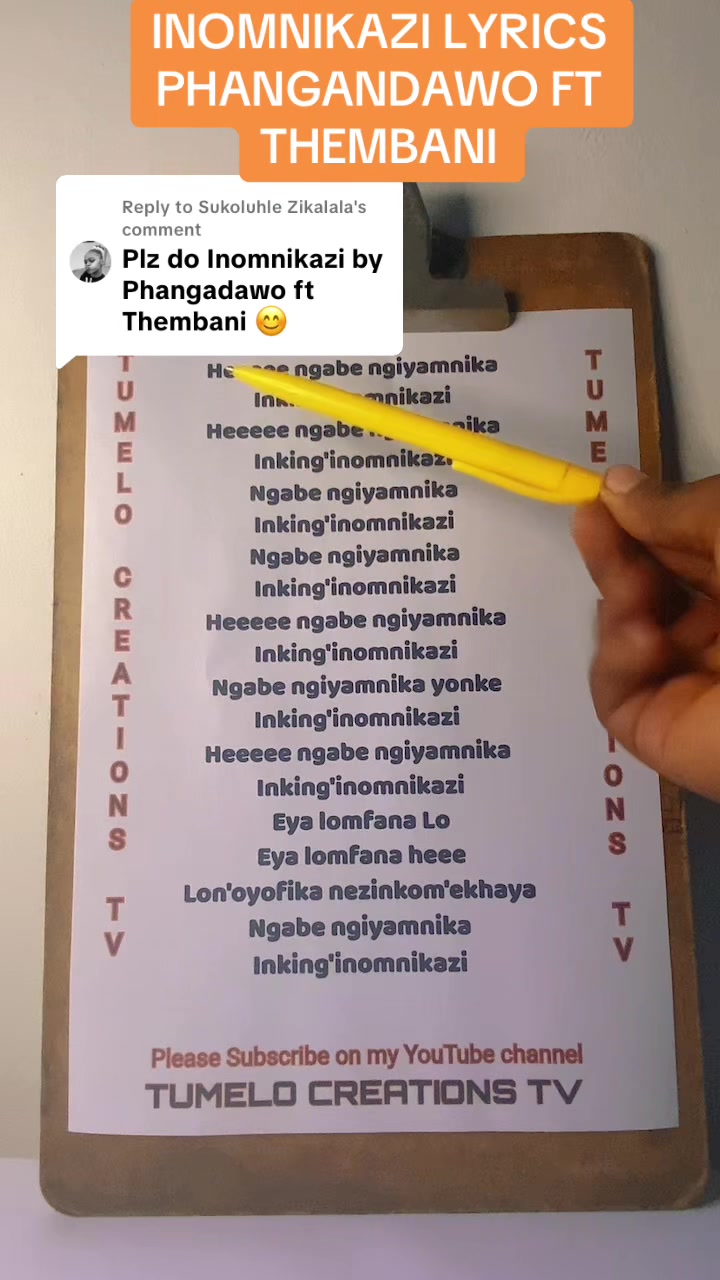 INOMNIKAZI LYRICS
PHANGANDAWO FT
THEMBANI
Reply to Sukoluhle Zikalala's
comment
Plz do Inomnikazi by
Phangadawo ft
Thembani 😊
ngabe ngiyamnika
Heeeee ngabe
Inking'inomnikazi
Ngabe ngiyamnika
Inking'inomnikazi
Ngabe ngiyamnika
Inking'inomnikazi
Heeeee ngabe ngiyamnika
Inking'inomnikazi
Ngabe ngiyamnika yonke
Inking'inomnikazi
Heeeee ngabe ngiyamnika
Inking'inomnikazi
Eya lomfana Lo
Eya lomfana heee
Lon'oyofika nezinkom'ekhaya
Ngabe ngiyamnika
Inking'inomnikazi
Please Subscribe on my YouTube channel
TUMELO CREATIONS TV
TUMELO CREATIONS TV